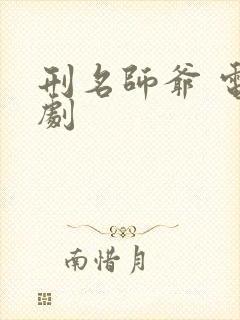 刑名師爺 電
劇
南惜月